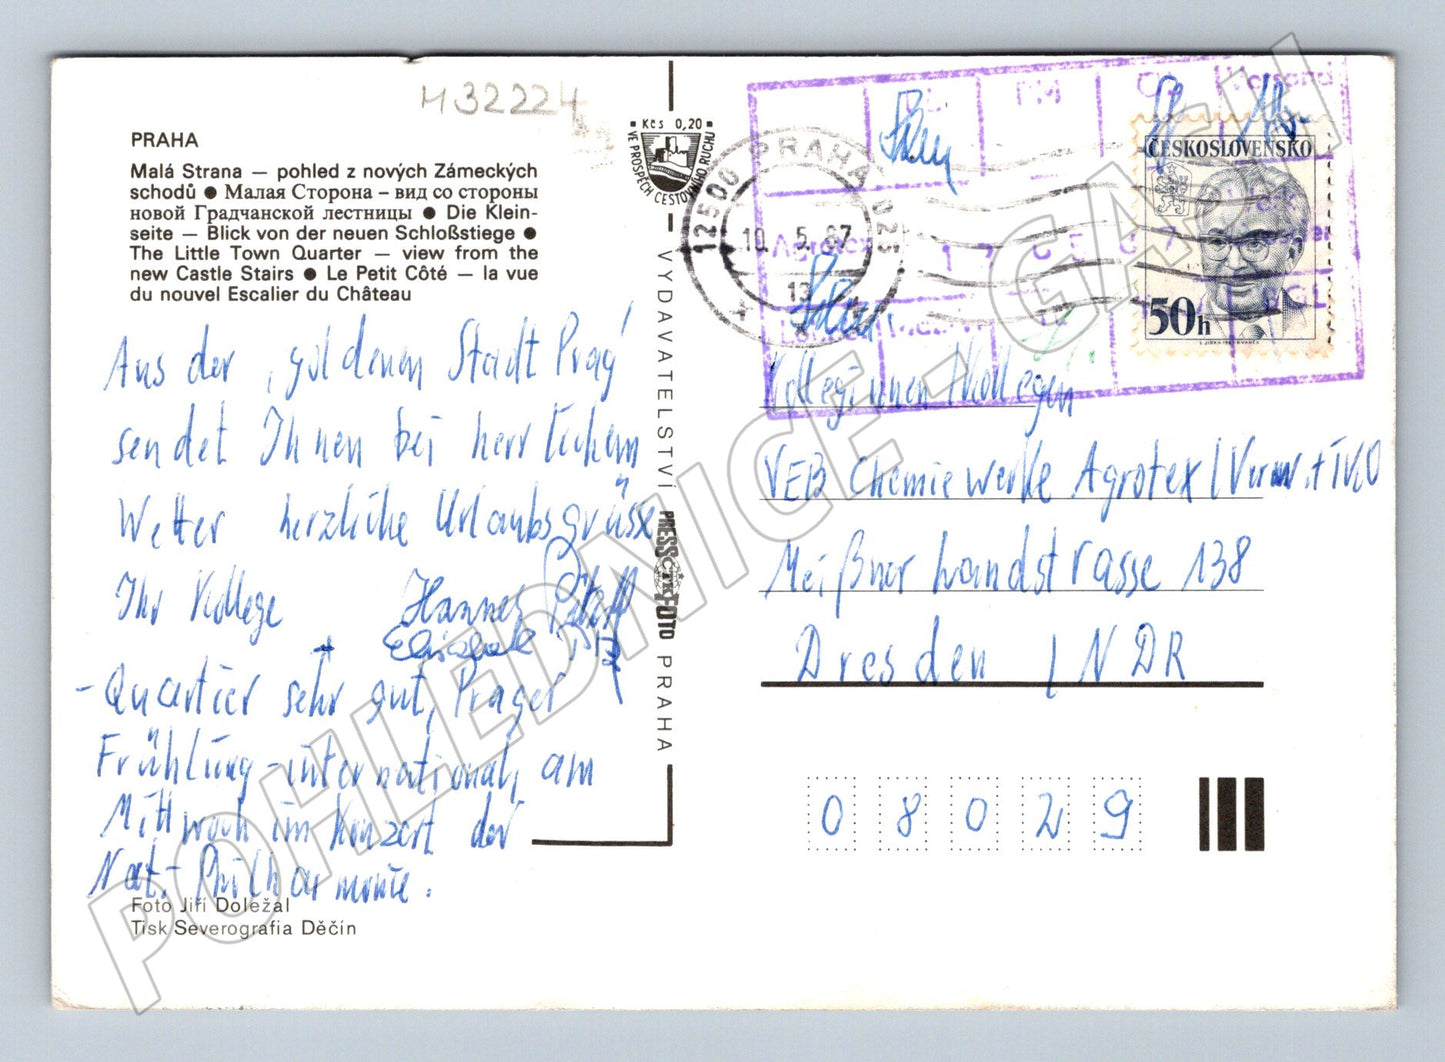 M32224
PRAHA
Malá Strana — pohled z nových Zámeckých
schodů ● Малая Сторона – вид со стороны
новой Градчанской лестницы ● Die Klein-
seite — Blick von der neuen Schloßstiege ●
The Little Town Quarter — view from the
new Castle Stairs ● Le Petit Côté — la vue
du nouvel Escalier du Château
Aus der "goldenen Stadt Prag"
sendet Ihnen bei herrlichem
Wetter herzliche Urlaubsgrüsse
Ihr Kollege Hannes
+ Elisabeth
- Quartier sehr gut, Prager
Frühlung - international, am
Mittwoch im Konzert der
Nat.- Philharmonie.
Foto Jiří Doležal
Tisk Severografia Děčín
Kčs 0,20
VE PROSPĚCH CESTOVNÍHO RUCHU
VYDAVATELSTVÍ PRESSFOTO PRAHA
ČTK
12500 PRAHA 025
10. 5. 87
13
Agrotex
ČESKOSLOVENSKO
50h
Kolleginnen / Kollegen
VEB Chemiewerke Agrotex /
Meißner Landstrasse 138
Dresden / NDR
0 8 0 29
POHLEDNICE - GASH